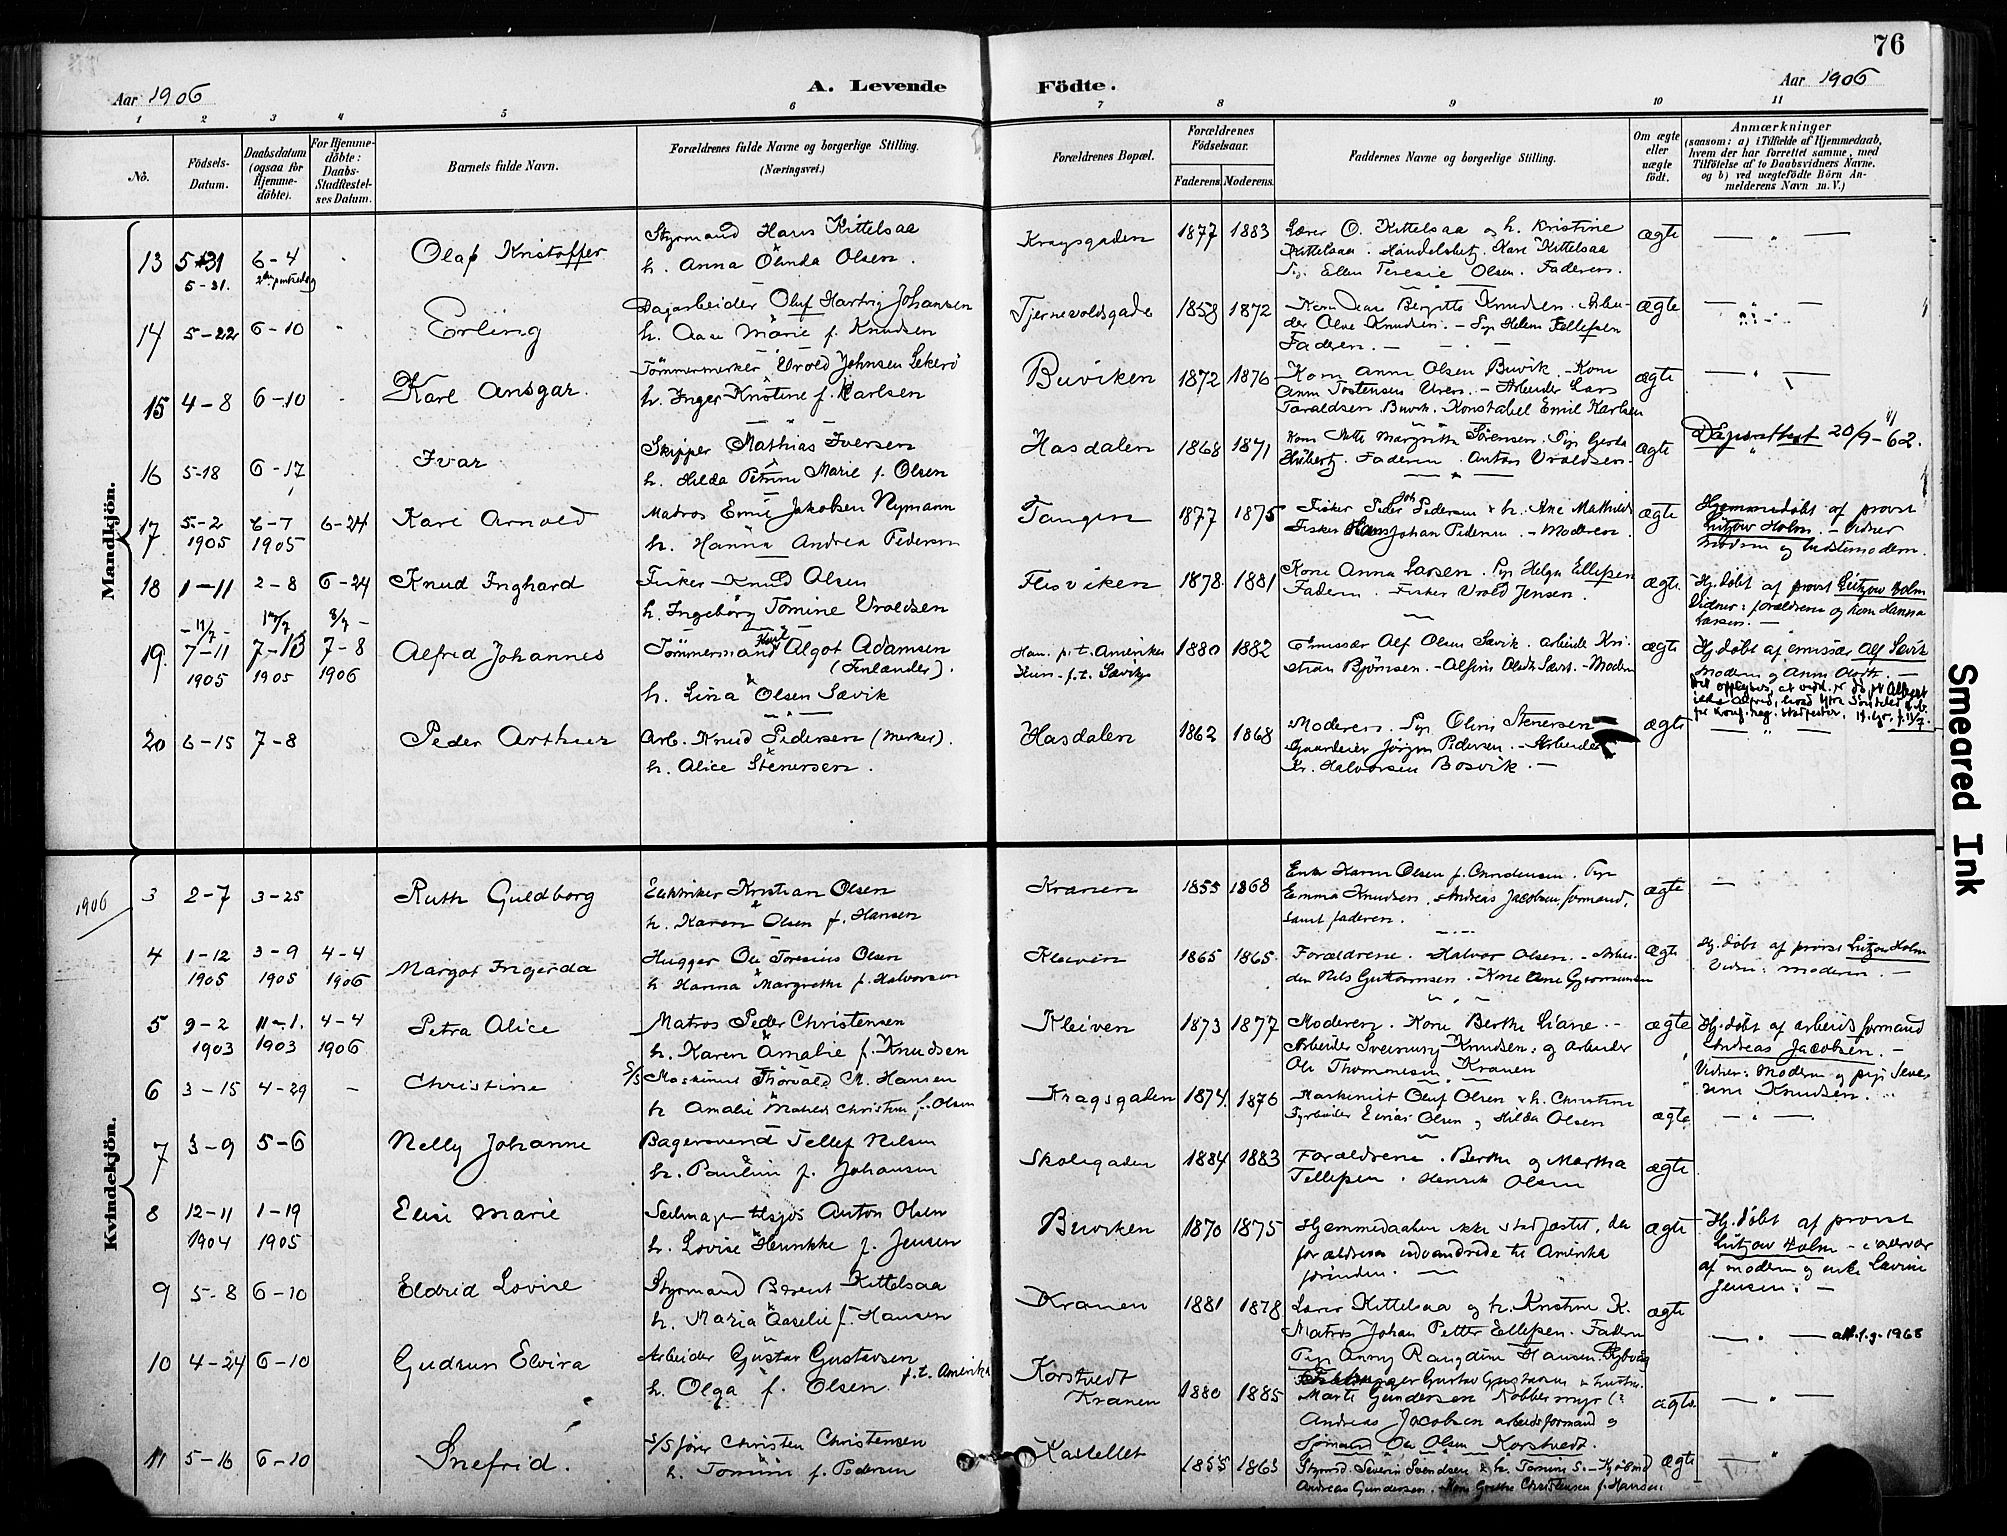 76
Aar 1906
A. Levende
Födte.
Aar 1906
1 2 3 4 5 6 7 8 9 10 11
No.
Födsels-Datum.
Daabsdatum (ogsaa for Hjemme-döbte).
For Hjemme-döbte: Daabs-Stadfæstel-ses Datum.
Barnets fulde Navn.
Forældrenes fulde Navne og borgerlige Stilling.
(Næringsvei.)
Forældrenes Bopæl.
Forældrenes Födselsaar.
Faderens. Moderens.
Faddernes Navne og borgerlige Stilling.
Om ægte eller uægte födt.
Anmærkninger
(saasom: a) i Tilfælde af Hjemmedaab, hvem der har forrettet samme, med Tilföielse af to Daabsvidners Navne. og b) ved uægtefödte Börn An-melderens Navn m. V.)
Mandkjön.
13 5-31 6-4 Olaf Kristoffer
5-31.
Styrmand Hans Kittelsaa
h. Anna Olinda Olsen.
Kragsgaden 1877 1883
Lærer O. Kittelsaa og h. Kristine
Kittelsaa. Handelsbetj. Kare Kittelsaa
Pg. Ellen Teresie Olsen. Faderen.
ægte
14 5-22 6-10 Erling
Dagarbeider Oluf Hartvig Johansen
h. Aase Marie f. Knudsen
Tjernevoldsgade 1858 1872
Kone Bergitte Knudsen. Arbei-
der Olve Knudsen. - Pg Helene Tellefsen
Faderen.
ægte
15 4-8 6-10 Karl Ansgar.
Tömmermerker Vrold Johnsen Lekerö
h. Inger Kristine f. Karlsen
Buviken 1872 1876
Kone Anne Olsen Buvik. - Kone
Anne Tostensen - Arbeider Lars
Taraldsen Buvik. Konstabel Emil Karlsen
ægte
16 5-18 6-17 Ivar
Skipper Mathias Iversen
h. Hilda Petrine Marie f. Olsen
Hasdalen 1868 1871
Kone Mette Margrethe Sørensen. Pige Gerda
Faderen. Anton Vroldsen.
ægte
20/9-62.
17 5-2 1905 6-7 1905 6-24 Karl Arnold
Matros Emil Jakobsen Nymann
h. Hanna Andrea Pedersen
Tangen 1877 1875
Fisker Peder Joh Pedersen & h. Ane Mathilde
Fisker Hans Johan Pedersen. - Moderen.
ægte
Hjemmedøbt af provst
Lützow Holm. - Vidner
Moderen og bedstemoderen.
18 1-11 2-8 6-24 Knud Inghard
Fisker Knud Olsen
h. Ingeborg Tomine Vroldsen
Flesviken 1878. 1881
Kone Anna Larsen. Pge Helga Ellefsen
Faderen. Fisker Vrold Jensen.
ægte.
Hj. døbt af provst Lützow Holm
Vidner: forældrene og kone Hanna
Larsen.
19. 7-11 1905 7-13 1905 7-8 1906 Alfred Johannes
Tömmermand Karl Algot Adamsen
(Finlænder).
h. Lina Olsen Sævik
Han p.t. Amerika
Hun f.t. Sævik
1880 1882
Emissær Alf Olsen Sævik. Arbeider Kri-
stian Bjönnsen. - Moderen
ægte
Hj. døbt af emissær Alf Sævik
Moderen og Anne
20 6-15 7-8 Peder Arthur
Arb. Knud Pedersen (Merker).
h. Alice Stenersen.
Hasdalen 1862 1868
Moderen. Pge Oline Stenersen
Gaardeier Jörgen Pedersen. - Arbeider
Kr. Halvorsen Bosvik.
ægte
Kvindekjön.
1906
3 2-7 3-25 Ruth Guldborg
Elektriker Kristian Olsen
h. Karen Olsen f. Hansen
Kranen 1855 1868
Enke Karen Olsen f. Christensen. Pige
Emma Knudsen, Andreas Jacobsen formand,
samt faderen.
ægte
4 1-12 1905 3-9 1905 4-4 1906 Margot Ingerda
Hugger Ole Toresius Olsen
h Hanna Margrethe f. Halvorsen
Kleiven 1865 1865.
Forældrene. Halvor Olsen. - Arbei-
der Nils Guttormsen. Kone Ane Gjermunsen
Ægte
Hj. døbt af provst Lützow Holm
Vidner: moderen.
5 9-2 1903 11-1. 1903 4-4 1906 Petra Alice
Matros Peder Christensen
h. Karen Amalie f. Knudsen
Kleiven 1873 1877
Moderen. Kone Berthe Liane.
Arbeider Sveinung Knudsen: og arbeider
Ole Thommesen Kranen
ægte
Hj. døbt af arbeidsformand
Andreas Jacobsen.
Vidner: Moderen og pige Seve-
rine Knudsen.
6 3-15 4-29 - Christine
S/S Maskinist Thorvald M. Hansen
h Amalie Mathilde Christine f. Olsen
Kragsgaden 1874. 1876
Maskinist Oluf Olsen & h. Christine
Fyrbøder Einar Olsen og Hilda Olsen
ægte
7 3-9 5-6 Nelly Johanne
Bagersvend Tellef Nilsen
h. Pauline f. Johansen
Skolegaden 1884 1883
Forældrene. Berthe og Martha
Tellefsen. Henrik Olsen
ægte
8 12-11 1904 1-19 1905 Elise Marie
Seilmager tilsjøs Anton Olsen
h. Lovise Henrikke f. Jensen
Buviken 1870 1875
Hjemmedaaben ikke stadfæstet, da
forældrene udvandrede til Amerika
forinden.
ægte
Hj. døbt af provst
Lützow Holm - i overvær
af moderen og enke Lavine
Jensen.
9 5-8 6-10 Eldrid Lovise
Styrmand Berent Kittelsaa
h. Maria Aaselie f. Hansen
Kranen 1881 1878
Lærer Kittelsaa og h. Kristine K.
Matros Johan Petter Ellefsen. Faderen
Pige Anny Ragndine Hansen.
ægte
1968
10 4-24 6-10 Gudrun Elvira
Arbeider Gustav Gustavsen
p.t. Amerika
h. Olga f. Olsen.
Korstvedt
Kranen 1880 1885
Gustav Gustavsen & hustru.
Marte Gundersen Kobbermyr
Andreas Jacobsen arbeidsformand og
Sjömand Ole Olsen Korstvedt.
ægte
11 5-16 6-10 Snefrid.
S/S fører Christen Christensen
h. Tomine f. Pedersen
Kastellet 1855 1863
Styrmd. Severin Svendsen & h. Tomine S.
Andreas Gundersen. - Kone Grethe Christensen f. Hansen
ægte
Smeared Ink